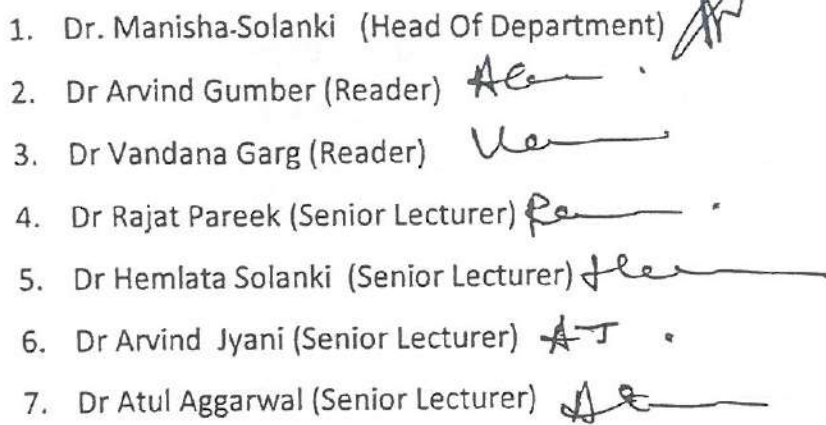 1. Dr. Manisha-Solanki (Head Of Department)
2. Dr Arvind Gumber (Reader)
3. Dr Vandana Garg (Reader)
4. Dr Rajat Pareek (Senior Lecturer)
5. Dr Hemlata Solanki (Senior Lecturer)
6. Dr Arvind Jyani (Senior Lecturer) AJ
7. Dr Atul Aggarwal (Senior Lecturer)